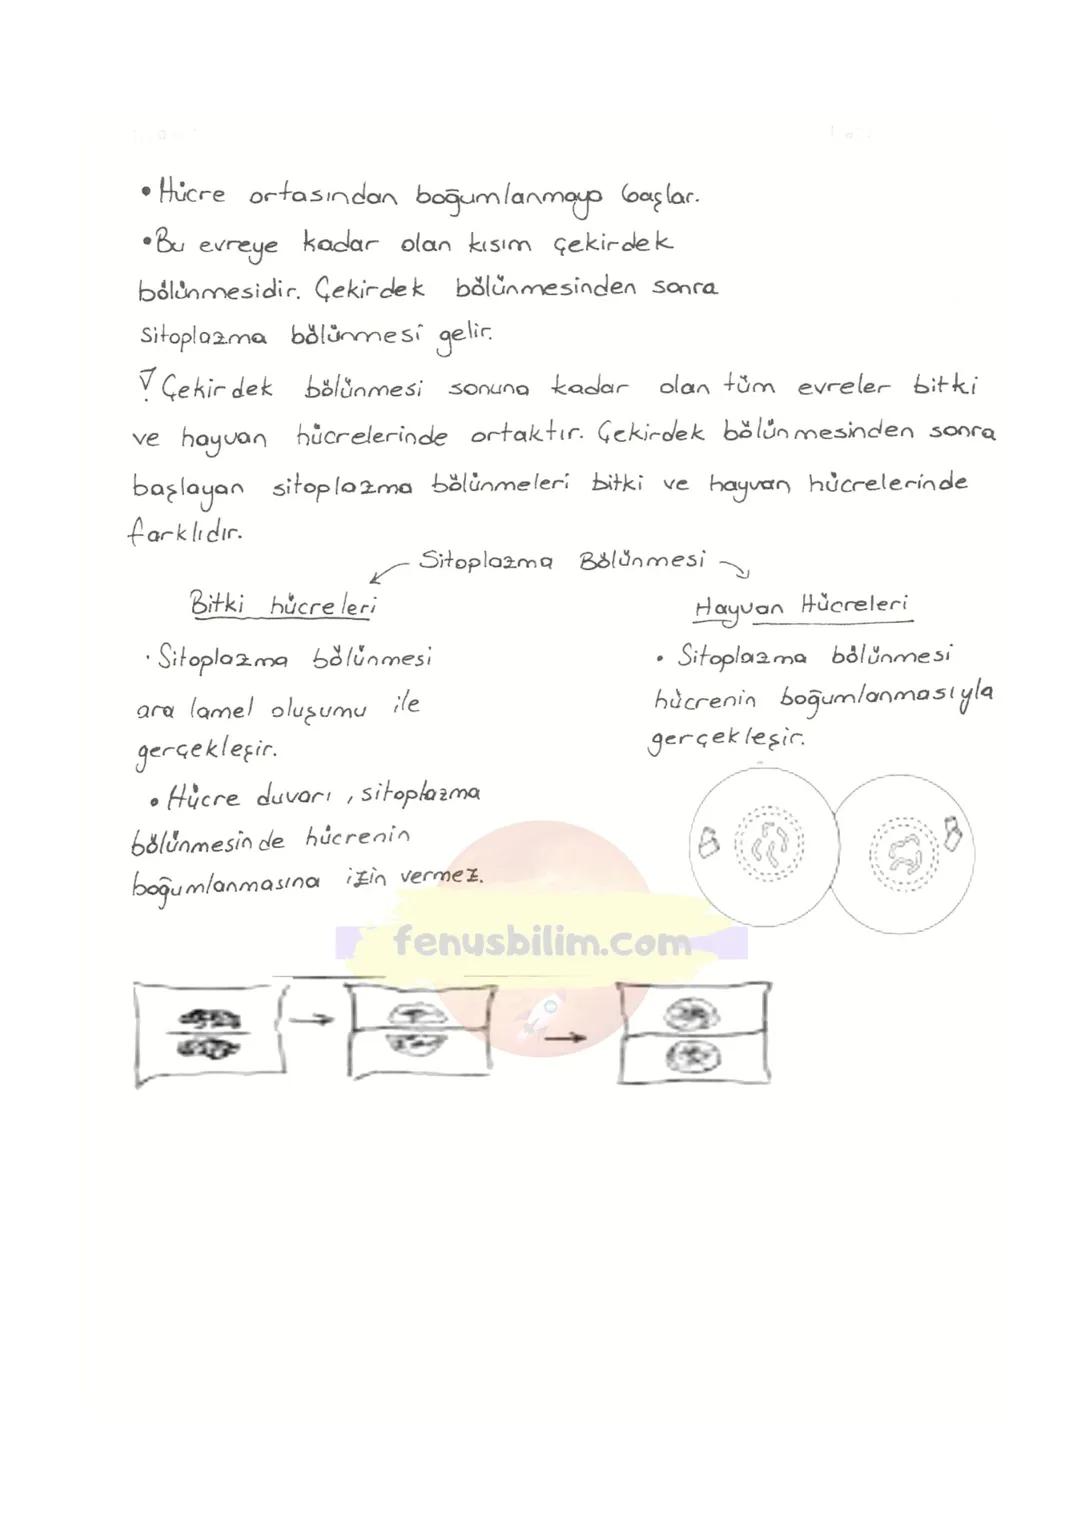 • Hücre ortasından boğumlanmaya başlar.
• Bu evreye kadar olan kısım çekirdek
bölünmesidir. Çekirdek bölünmesinden sonra
sitoplazma bölünmesi gelir.
! Çekirdek bölünmesi sonuna kadar olan tüm evreler bitki
ve hayvan hücrelerinde ortaktır. Çekirdek bölünmesinden sonra
başlayan sitoplazma bölünmeleri bitki ve hayvan hücrelerinde
farklıdır.
Sitoplazma Bölünmesi
Bitki hücreleri
• Sitoplazma bölünmesi
ara lamel oluşumu ile
gerçekleşir.
• Hücre duvarı, sitoplazma
bölünmesinde hücrenin
boğumlanmasına izin vermez.
Hayvan Hücreleri
• Sitoplazma bölünmesi
hücrenin boğumlanmasıyla
gerçekleşir.
fenusbilim.com